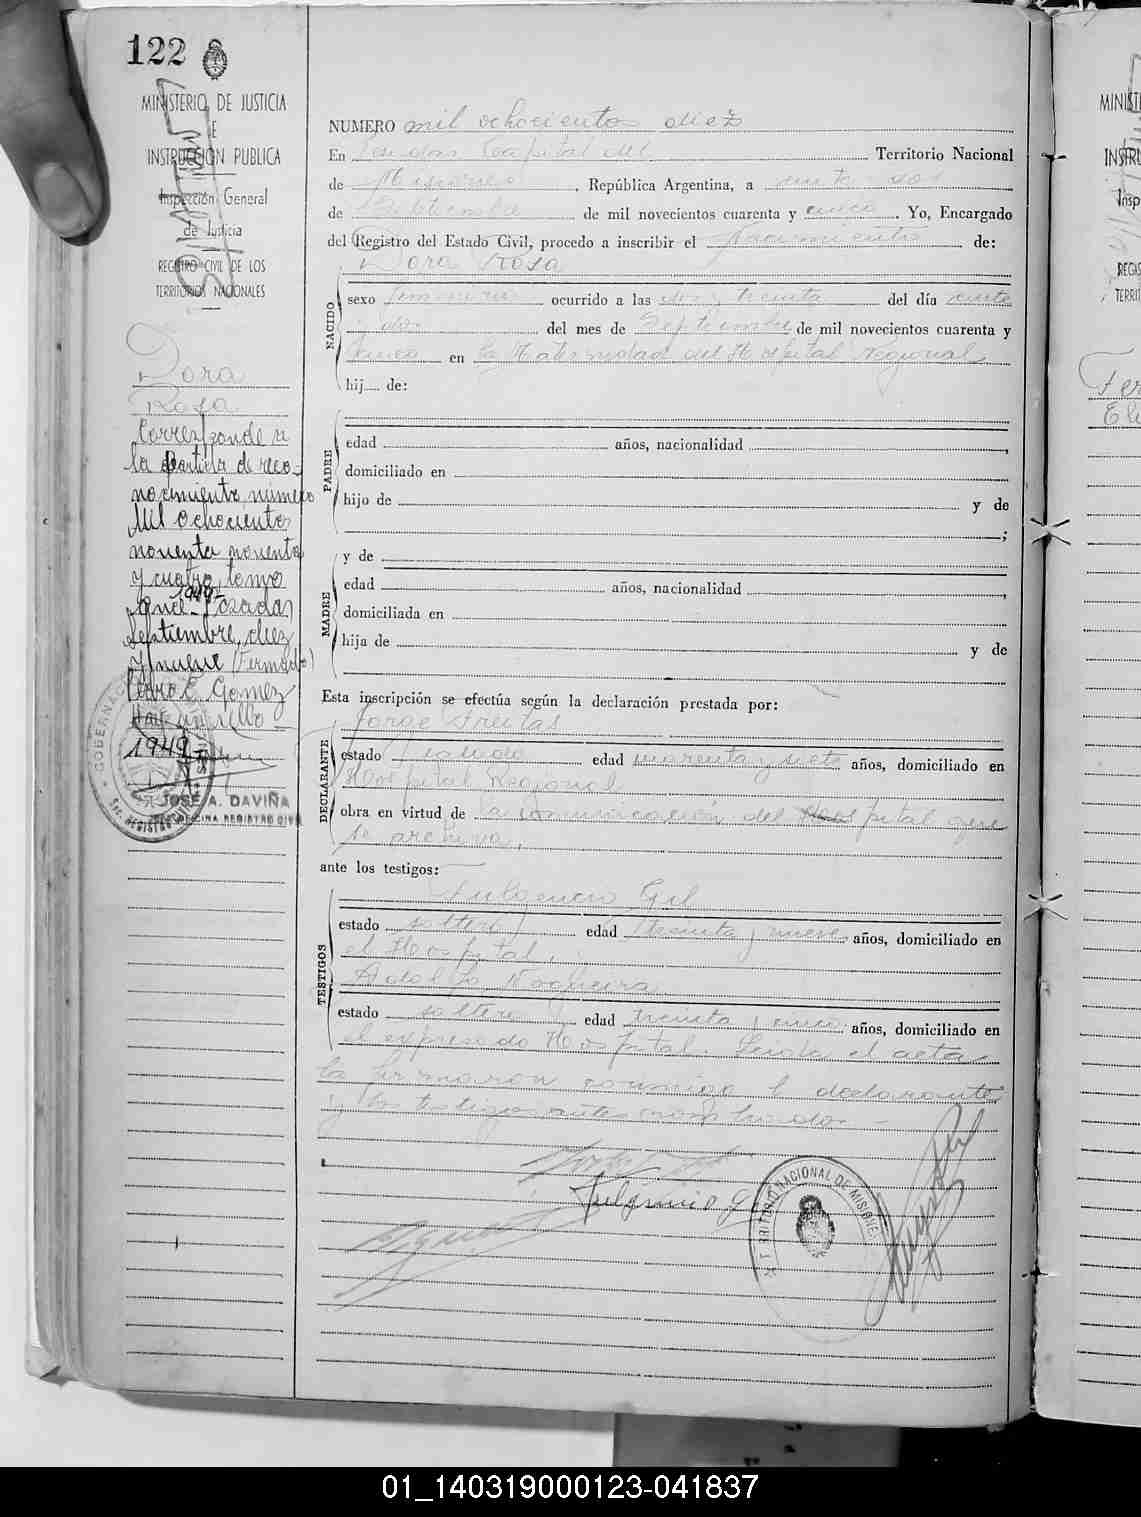 122
MINISTERIO DE JUSTICIA
E
INSTRUCCION PUBLICA
Inspección General
de Justicia
REGISTRO CIVIL DE LOS
TERRITORIOS NACIONALES
Dora
Rosa
Corresponde a
la partida de reco-
nocimiento número
Mil ochocientos
noventa noventa
y cuatro tomo
1949
Posadas
Septiembre, diez
y nueve (Firmado)
Pedro E. Gomez
Hay un sello
1949
JOSÉ A. DAVIÑA
OFICINA REGISTRO CIVIL
NUMERO mil ochocientos diez
En Posadas Capital del Territorio Nacional
de Misiones, República Argentina, a veinte dos
de Setiembre de mil novecientos cuarenta y cinco. Yo, Encargado
del Registro del Estado Civil, procedo a inscribir el Nacimiento de:
Dora Rosa
NACIDO
sexo femenino ocurrido a las dos y treinta del día veinte
dos del mes de Septiembre de mil novecientos cuarenta y
cinco en la Maternidad del Hospital Regional
hij de:
PADRE
edad años, nacionalidad ,
domiciliado en
hijo de y de
;
MADRE
y de
edad años, nacionalidad ,
domiciliada en
hija de y de
Esta inscripción se efectúa según la declaración prestada por:
Jorge Freitas
DECLARANTE
estado edad cuarenta y siete años, domiciliado en
Hospital Regional
obra en virtud de la comunicación del Hospital que
se archiva.
ante los testigos:
Fulgencio Gil
TESTIGOS
estado soltero edad treinta y nueve años, domiciliado en
el Hospital.
Adolfo Nogueira
estado soltero edad treinta y cinco años, domiciliado en
el expresado Hospital. Leida el acta
la firmaron conmigo el declarante
y los testigos antes nombrados -
Fulgencio G
TERRITORIO NACIONAL DE MISIONES
MINIST
INSTRU
Insp
REGIS
TERRIT
01_140319000123-041837